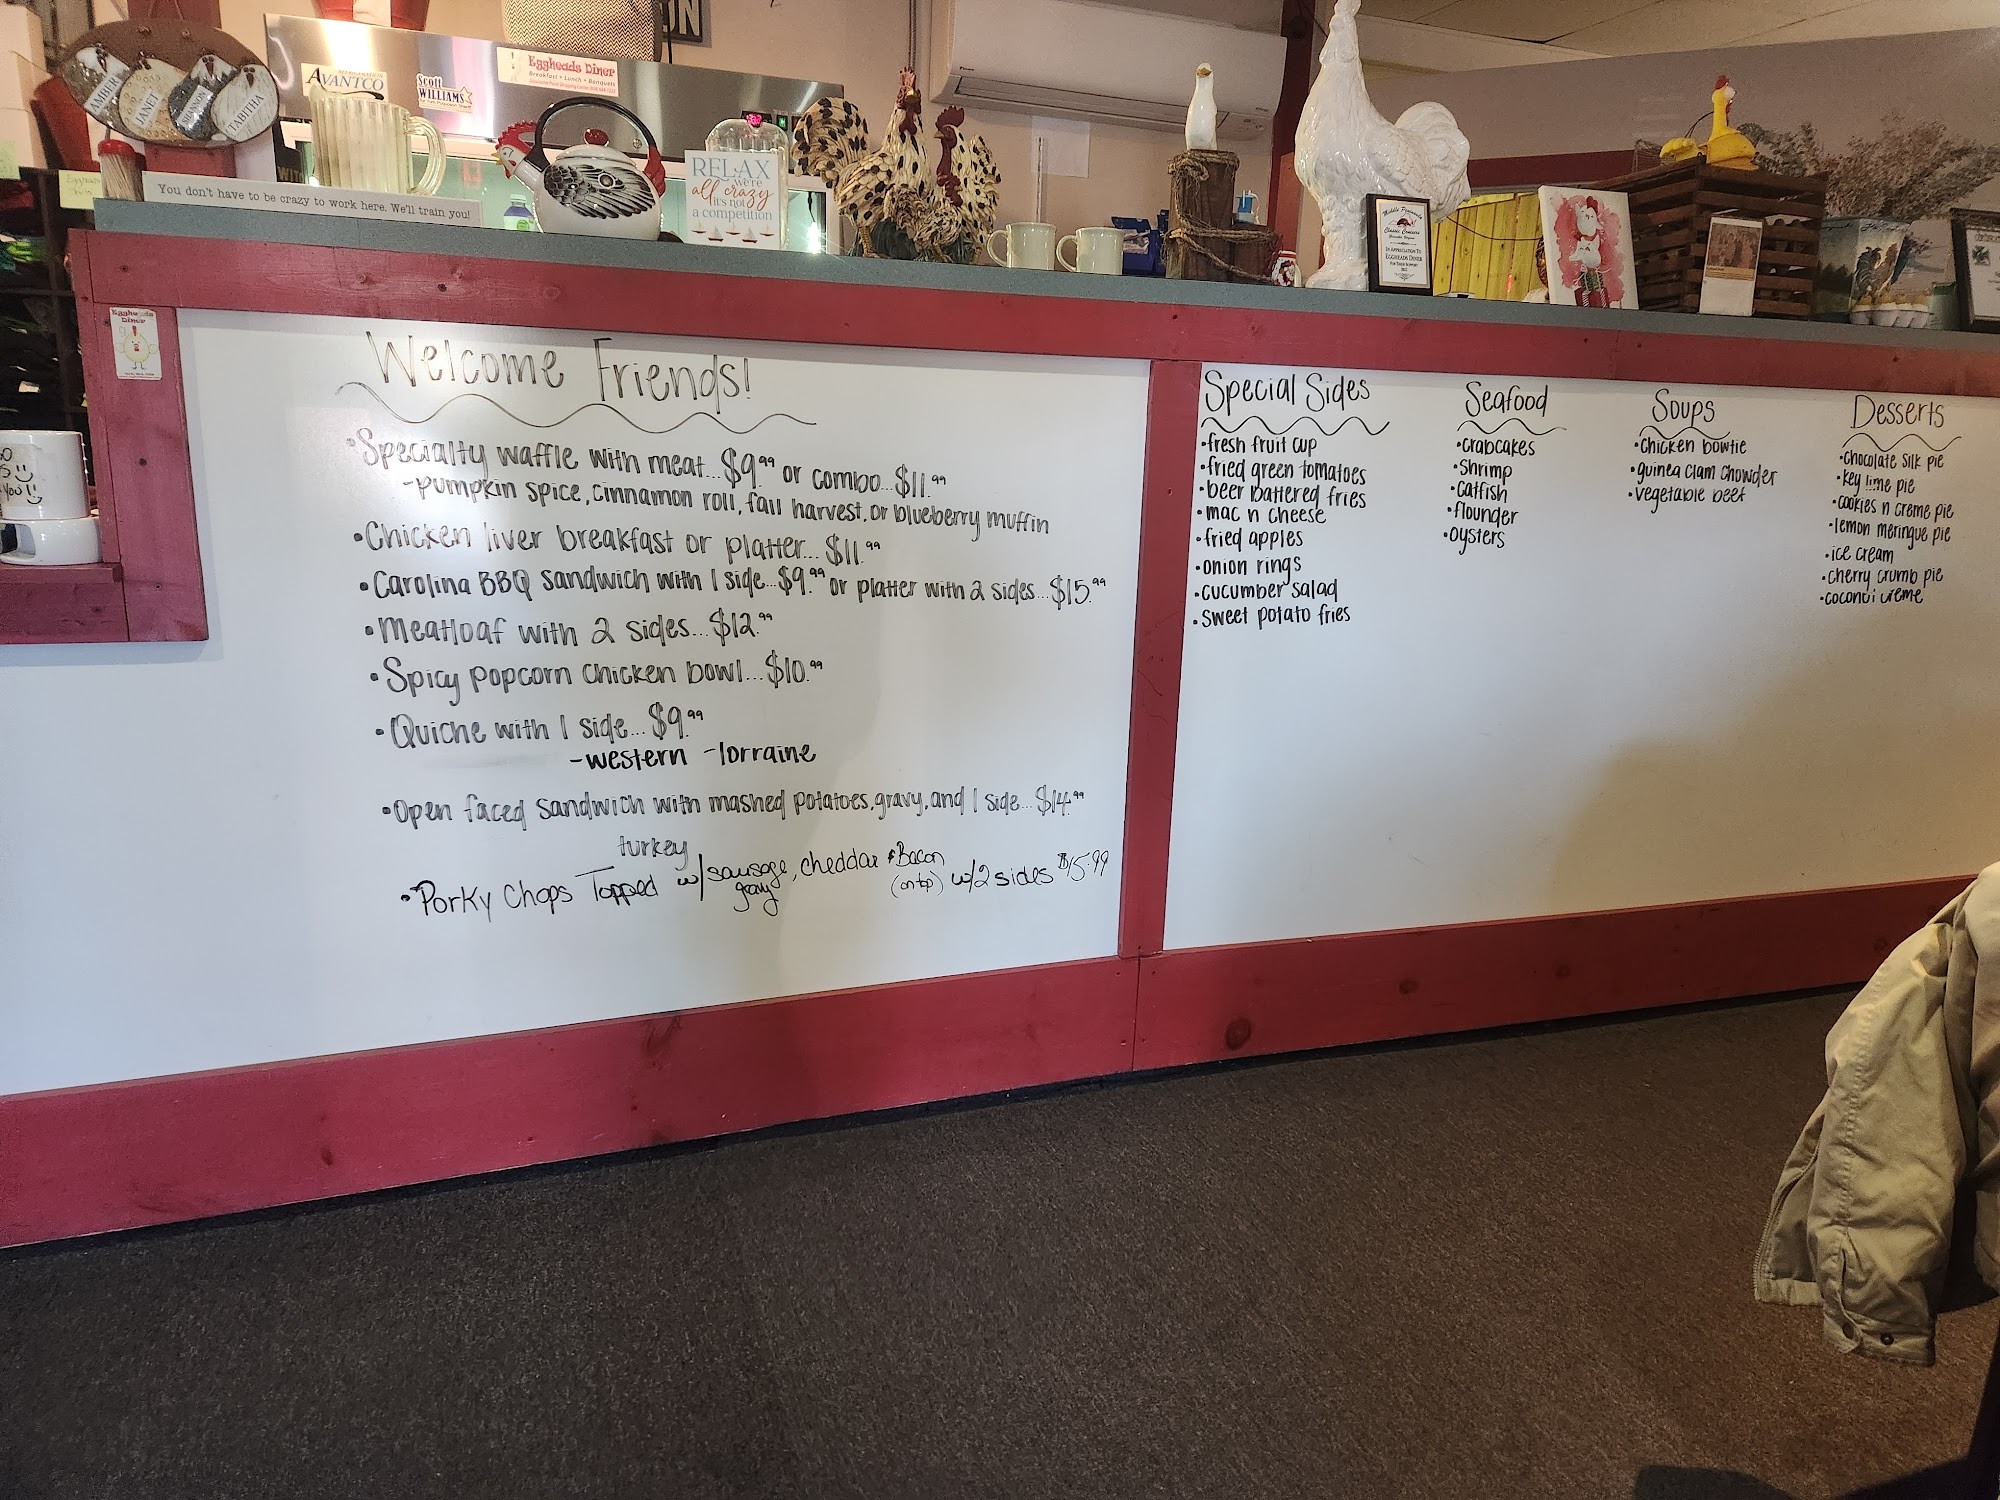 AMBER
JANET
SHANNON
TABITHA
AVANTCO
Scott
WILLIAMS
Eggheads Diner
Breakfast • Lunch • Banquets
You don't have to be crazy to work here. We'll train you!
RELAX
we're
all crazy
it's not
a competition
Middle Peninsula
Classic Cruisers
In Appreciation To
Eggheads Diner
For Their Support
Eggheads
Diner
Welcome Friends!
• Specialty waffle with meat...$9.99 or combo...$11.99
- pumpkin spice, cinnamon roll, fall harvest, or blueberry muffin
• Chicken liver breakfast or platter...$11.99
• Carolina BBQ sandwich with 1 side...$9.99 or platter with 2 sides...$15.99
• Meatloaf with 2 sides...$12.99
• Spicy popcorn chicken bowl...$10.99
• Quiche with 1 side...$9.99
-western -lorraine
• Open faced sandwich with mashed potatoes, gravy, and 1 side...$14.99
turkey
• Porky Chops Topped w/ sausage gravy, cheddar & Bacon (on top) w/2 sides $15.99
Special Sides
• fresh fruit cup
• fried green tomatoes
• beer battered fries
• mac n cheese
• fried apples
• onion rings
• cucumber salad
• sweet potato fries
Seafood
• crabcakes
• shrimp
• catfish
• flounder
• oysters
Soups
• chicken bowtie
• guinea clam chowder
• vegetable beef
Desserts
• chocolate silk pie
• key lime pie
• cookies n creme pie
• lemon meringue pie
• ice cream
• cherry crumb pie
• coconut creme